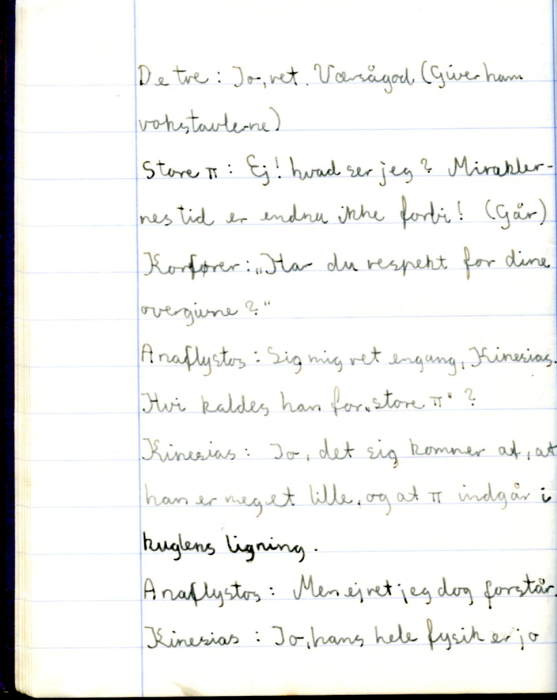 De tre : Jo, ret. Værsågod (Giver ham
vokstavlerne)
Store π : Ej! hvad ser jeg? Mirakler-
nes tid er endnu ikke forbi! (Går)
Korfører: „Har du respekt for dine
overgivne?"
Anaflystos : Sig mig ret engang, Kinesias.
Hvi kaldes han for „store π" ?
Kinesias : Jo, det sig kommer af, at
han er meget lille, og at π indgår i
kuglens ligning.
Anaflystos : Men ej ret jeg dog forstår.
Kinesias : Jo, hans hele fysik er jo